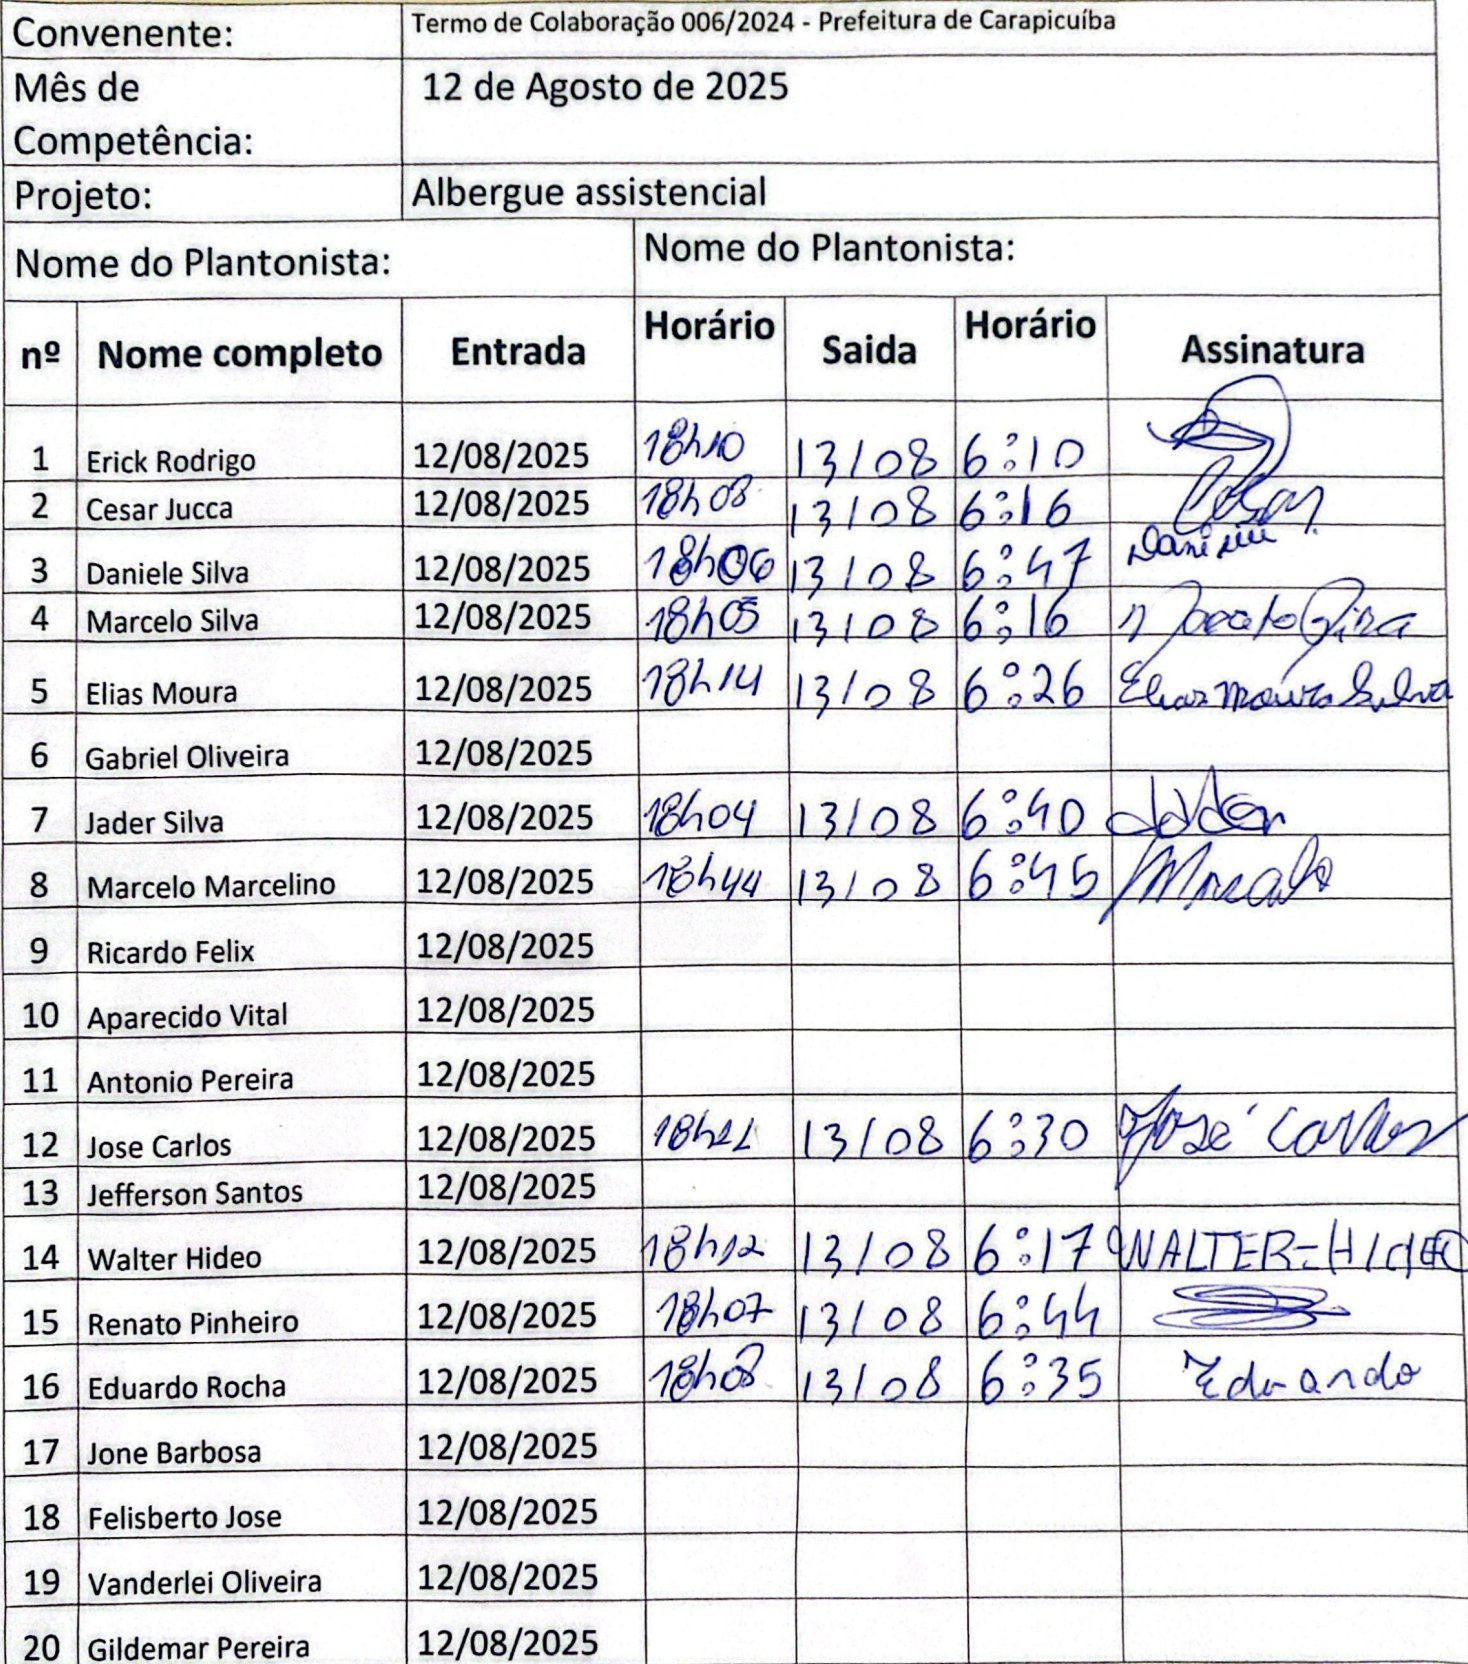 Convenente: Termo de Colaboração 006/2024 - Prefeitura de Carapicuíba
Mês de Competência: 12 de Agosto de 2025
Projeto: Albergue assistencial
Nome do Plantonista: Nome do Plantonista:
nº Nome completo Entrada Horário Saida Horário Assinatura
1 Erick Rodrigo 12/08/2025 18h10 13/08 6:10
2 Cesar Jucca 12/08/2025 18h08 13/08 6:16 Cesar
3 Daniele Silva 12/08/2025 18h06 13/08 6:47
4 Marcelo Silva 12/08/2025 18h05 13/08 6:16
5 Elias Moura 12/08/2025 18h14 13/08 6:26 Elias Moura Silva
6 Gabriel Oliveira 12/08/2025
7 Jader Silva 12/08/2025 18h04 13/08 6:40
8 Marcelo Marcelino 12/08/2025 18h44 13/08 6:45
9 Ricardo Felix 12/08/2025
10 Aparecido Vital 12/08/2025
11 Antonio Pereira 12/08/2025
12 Jose Carlos 12/08/2025 13/08 6:30 José Carlos
13 Jefferson Santos 12/08/2025
14 Walter Hideo 12/08/2025 18h12 13/08 6:17 WALTER=HIDEO
15 Renato Pinheiro 12/08/2025 18h07 13/08 6:44
16 Eduardo Rocha 12/08/2025 18h08 13/08 6:35 Eduardo
17 Jone Barbosa 12/08/2025
18 Felisberto Jose 12/08/2025
19 Vanderlei Oliveira 12/08/2025
20 Gildemar Pereira 12/08/2025